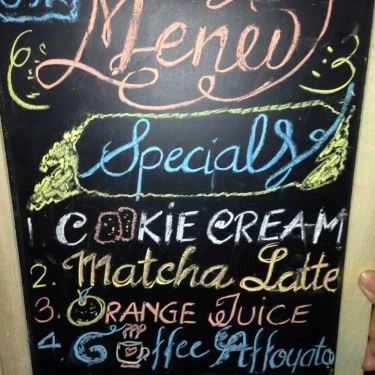 Menu
Specials
1 COOKIE CREAM
2. Matcha Latte
3. ORANGE JUICE
4 Coffee Affoyato